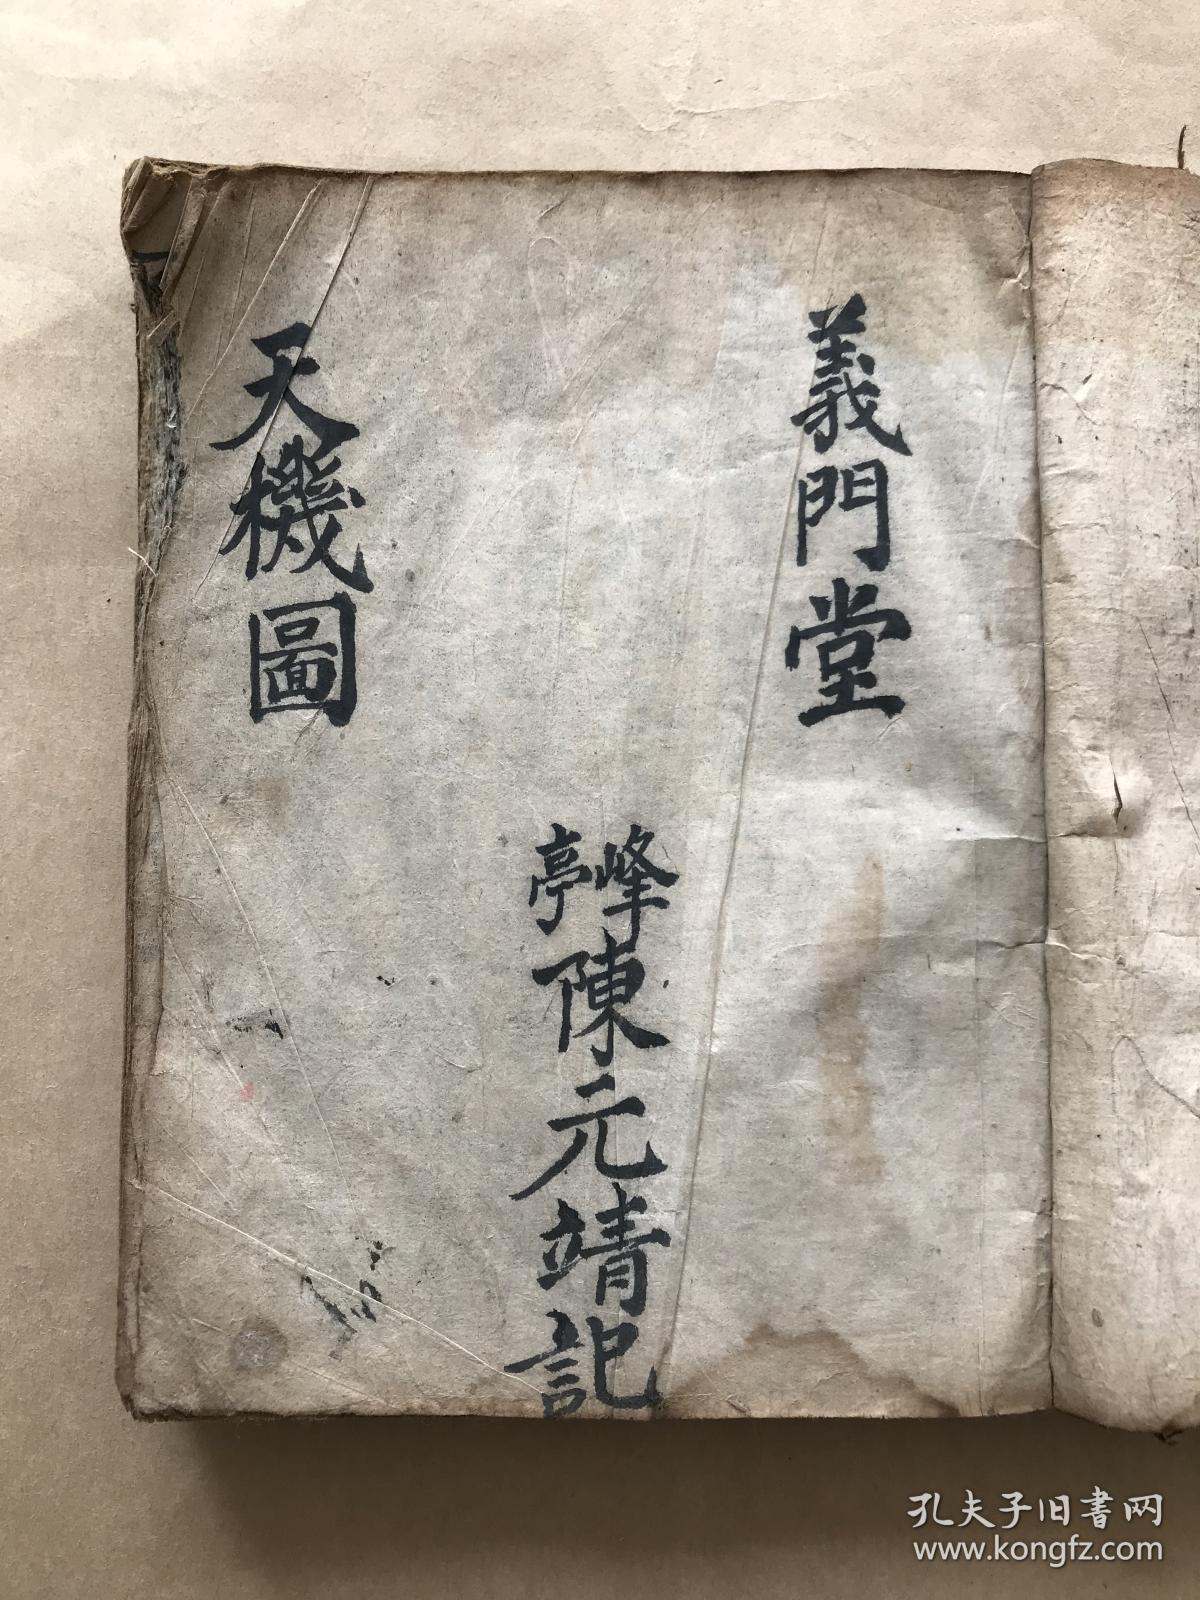 義門堂
峰亭
陳元靖記
天機圖
孔夫子旧書网
www.kongfz.com